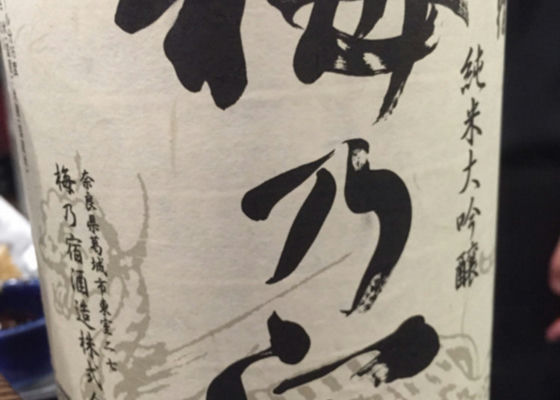 純米大吟醸
梅乃宿
奈良県葛城市東室二七
梅乃宿酒造株式会